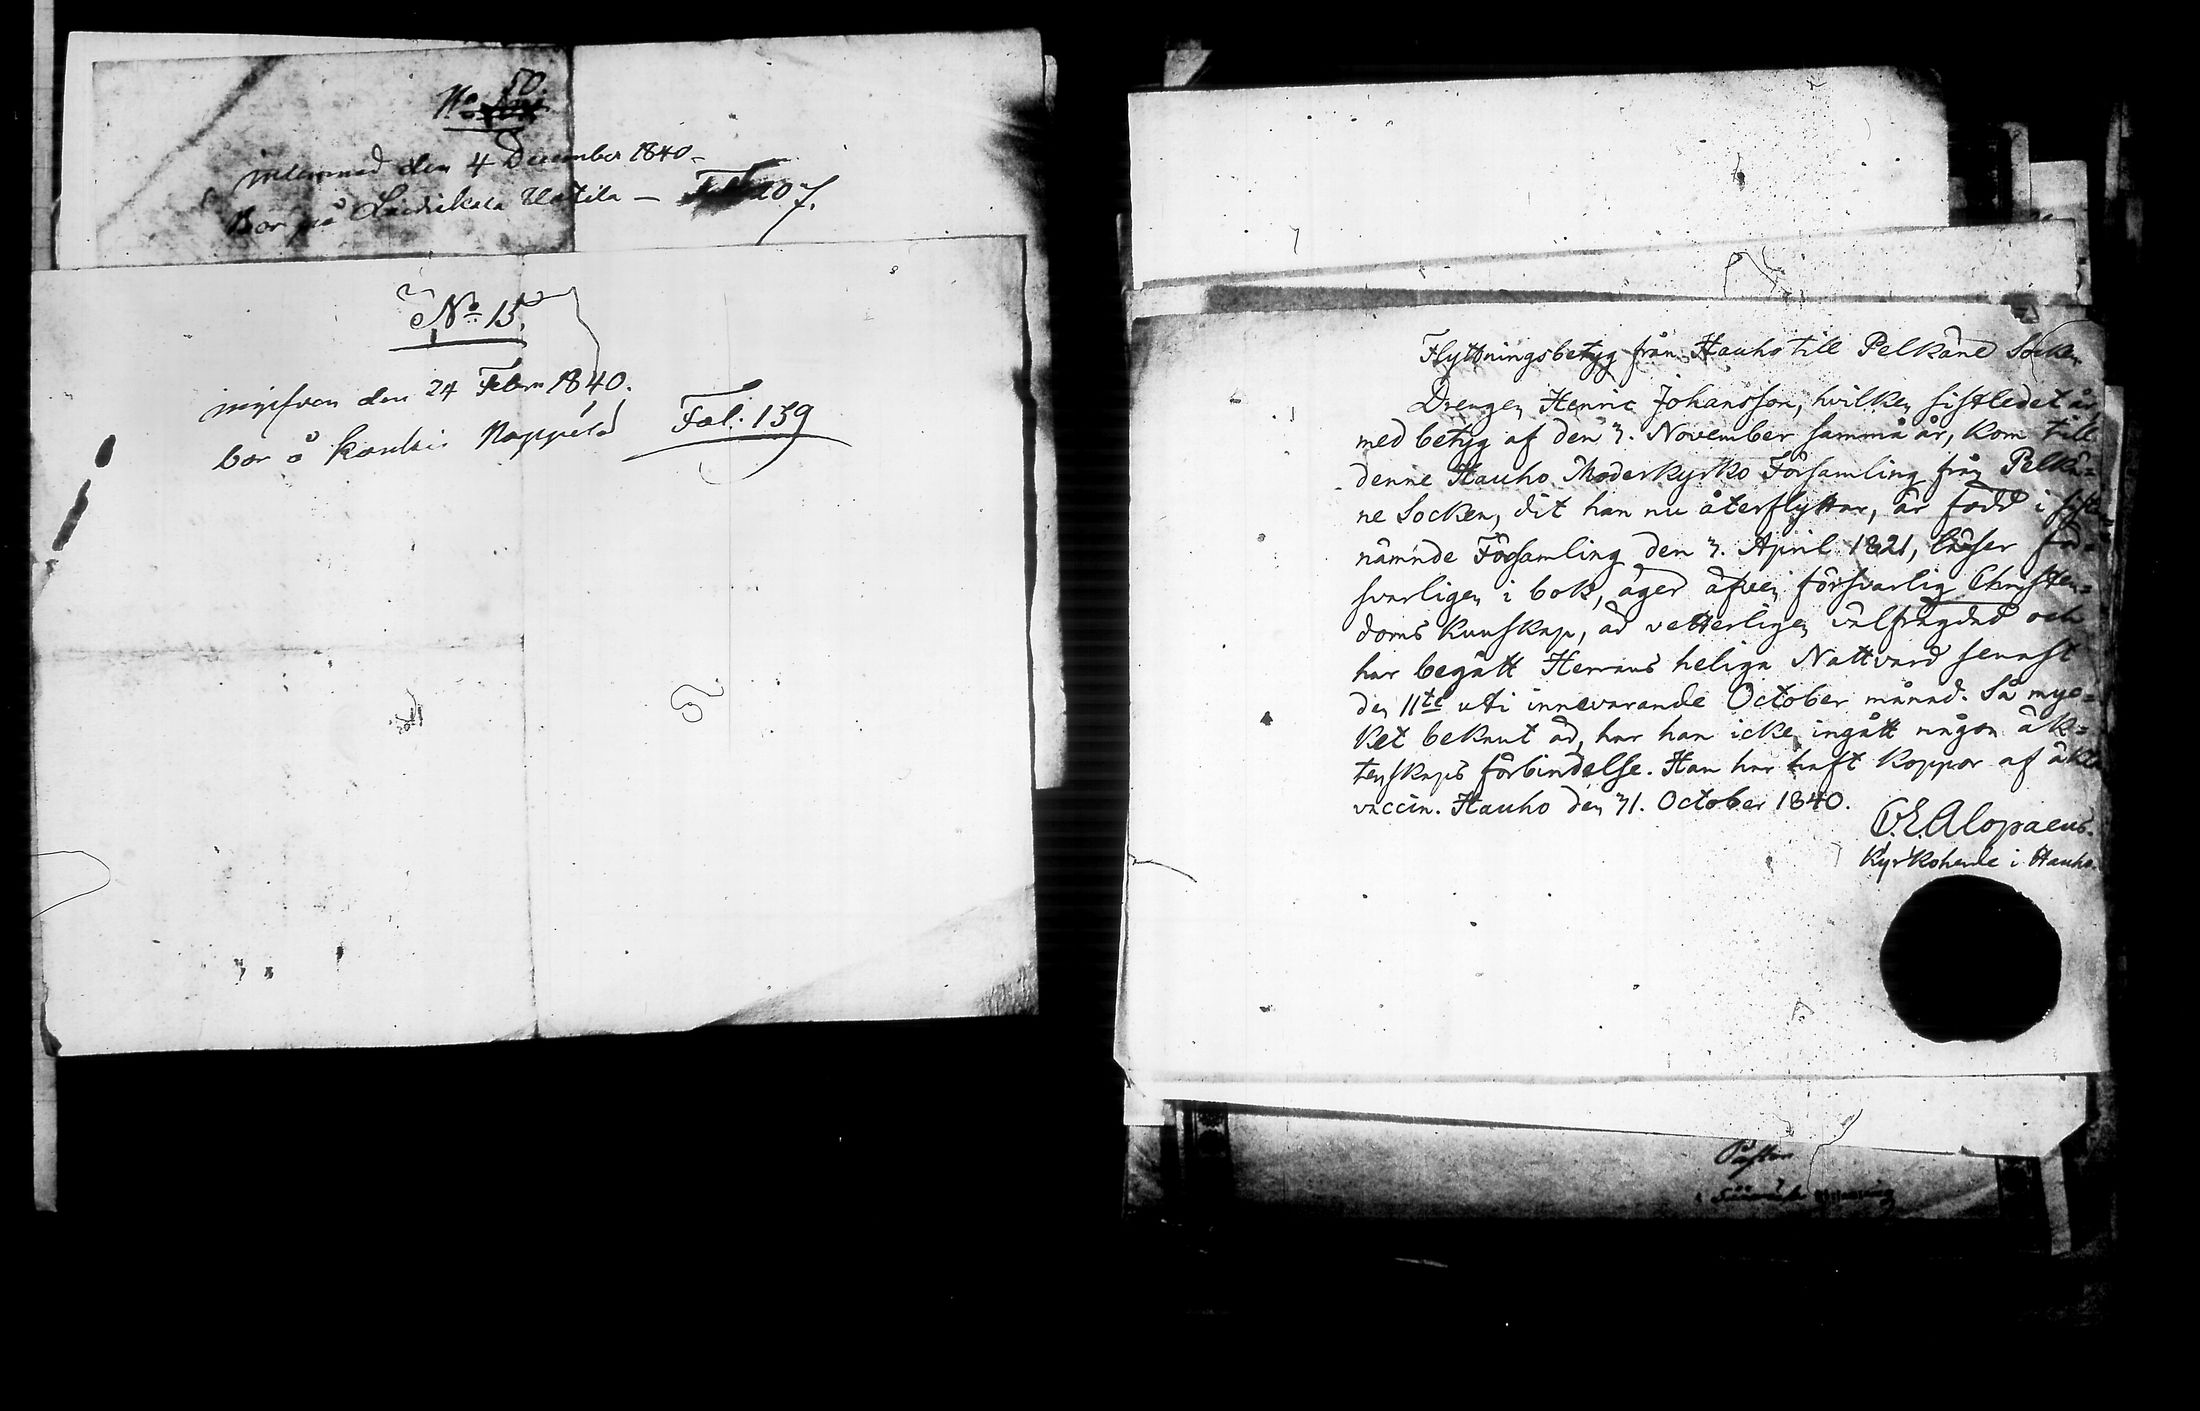 No 50.
inlemnad den 4 December 1840.
Bor på Laidikala Uotila — Fol 207.
No 15.
ingifven den 24 Febru 1840.
bor å Nappila Fol. 159
Flyttningsbetyg från Hauho till Pelkäne Socken
Drengen Henric Johansson, hvilken sistledet år
med betyg af den 7. November samma år, kom till
denne Hauho Moderkyrko Församling från Pelkä=
ne Socken, dit han nu återflyttar, är född i sist=
nämnde Församling den 7. April 1821, läser för=
svarligen i bok, äger äfven försvarlig Christen=
doms kunskap, är vetterligen välfrägdad och
har begått Herrans heliga Nattvard senast
den 11te uti innevarande October månad. Så myc=
ket bekant är, har han icke ingått någon äk=
tenskaps förbindelse. Han har haft koppor af äkta
vaccin. Hauho den 31. October 1840.
C. E. Alopaeus.
Kyrkoherde i Hauho.
Pastor